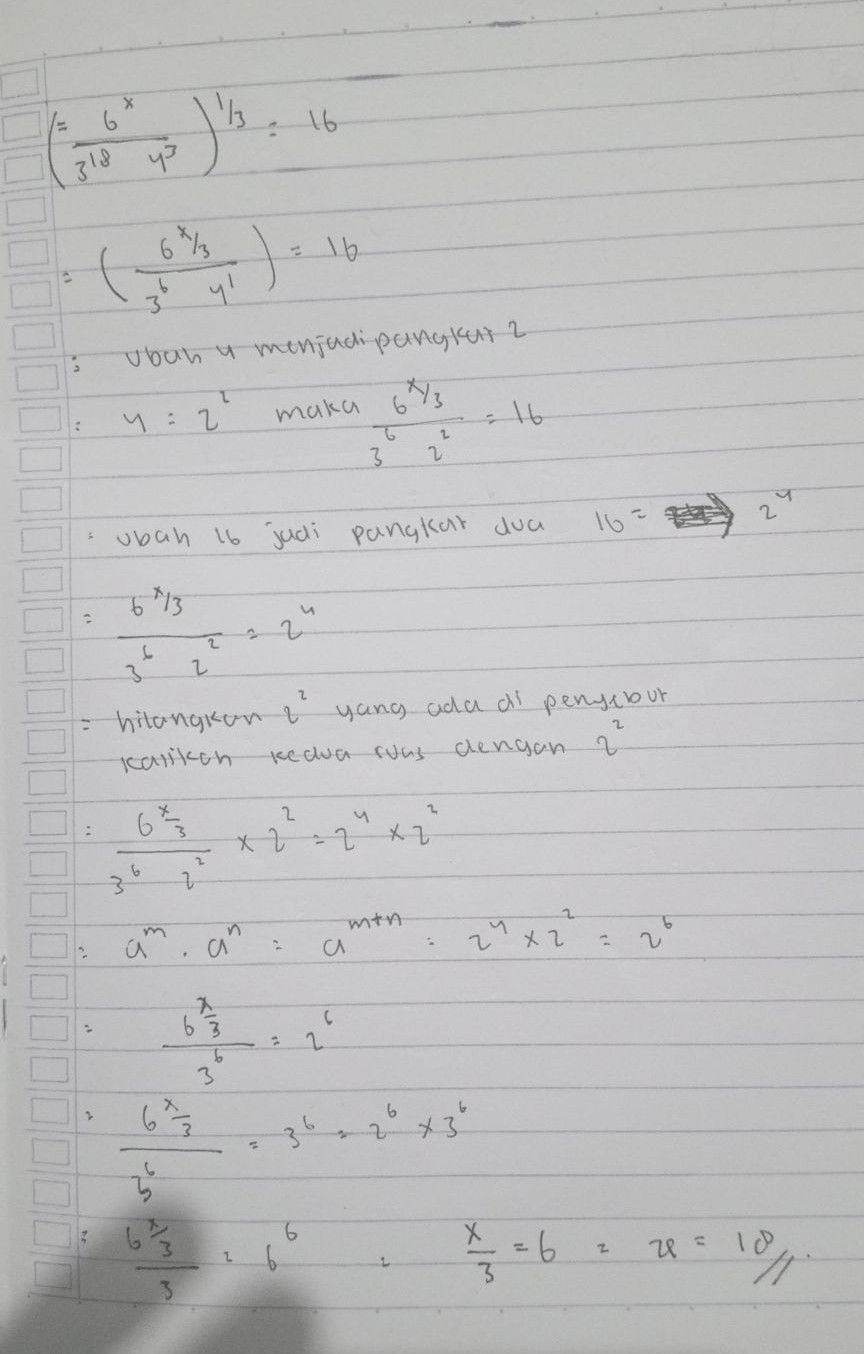 (= 6^x / 3^18 4^3)^1/3 = 16
= (6^x/3 / 3^6 4^1) = 16
: Ubah 4 menjadi pangkat 2
: 4 = 2^2 maka 6^x/3 / 3^6 2^2 = 16
: Ubah 16 jadi pangkat dua 16 = 2^4
= 6^x/3 / 3^6 2^2 = 2^4
= hilangkan 2^2 yang ada di penyebut
kalikan kedua ruas dengan 2^2
= 6^x/3 / 3^6 2^2 × 2^2 = 2^4 × 2^2
: a^m . a^n = a^m+n = 2^4 × 2^2 = 2^6
= 6^x/3 / 3^6 = 2^6
= 6^x/3 / 3^6 = 3^6 = 2^6 × 3^6
= 6^x/3 / 3 = 6^6 = x/3 = 6 = x = 18 //.